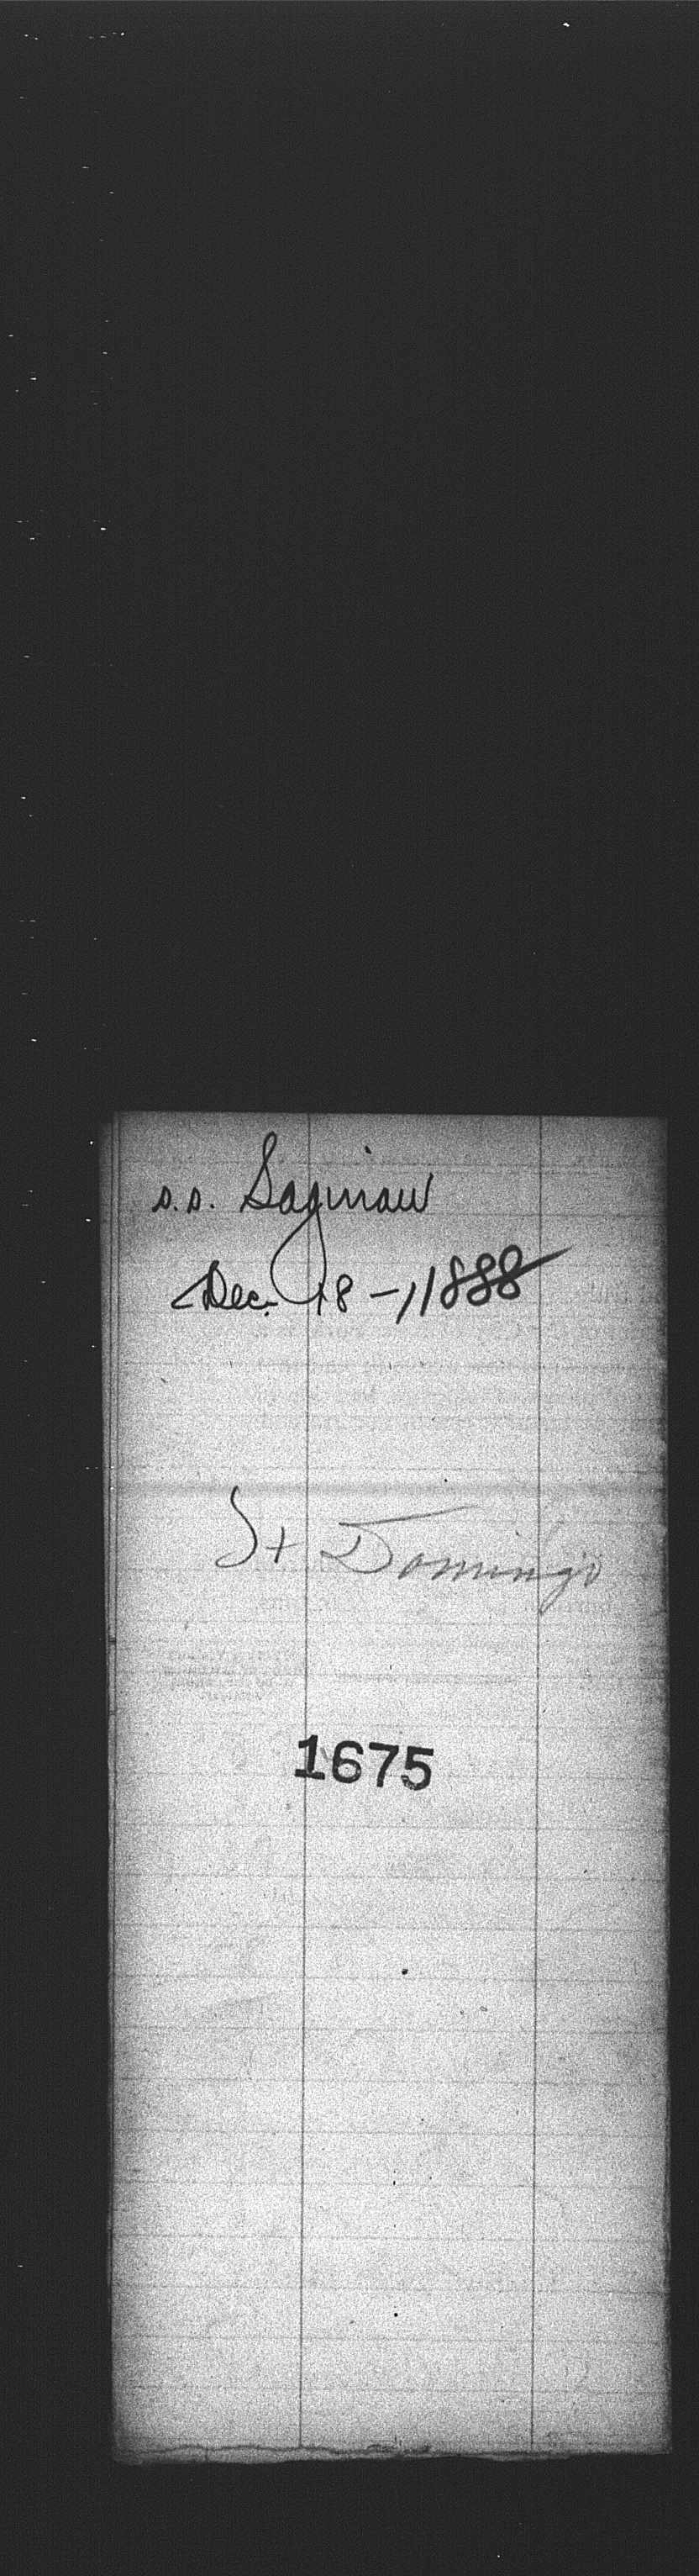 s.s. Saginaw
Dec. 18 - 1888
St Domingo
1675